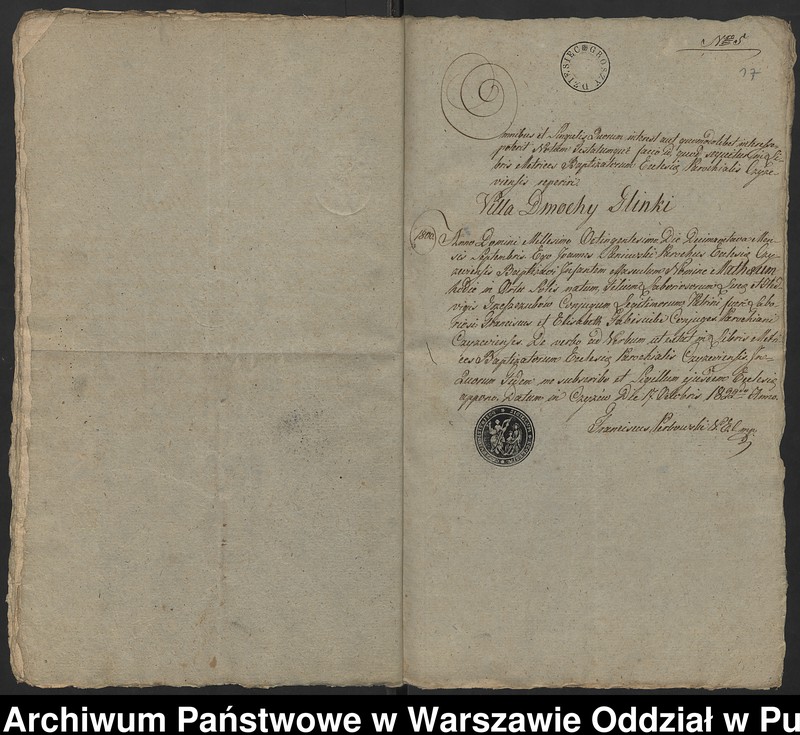 Nro 5
17
DZIESIĘC GROSZY
Omnibus et Singulis Quorum interest aut quomodolibet interesse
poterit Notum Testatumque facio in quod sequitur in Li-
bris Metrices Baptizatorum Ecclesiæ Parochialis Czyze-
viensis reperiri
Villa Dmochy Glinki
1800
Anno Domini Millesimo Octingentesimo Die Decimaoctava Men-
sis Septembris Ego Joannes Parochus Ecclesiæ Czy-
zeviensis Baptizavi Infantem Masculum Nomine Mathæum
hodie in Ortu Solis natum, Filium Laboriosorum Lucæ et Hed-
vigis Conjugum Legitimorum Patrini fuere Labo-
riosi Franciscus et Elisabeth Conjuges Parochiani
Czyzevienses De verbo ad Verbum ut estat in Libris Metri-
ces Baptizatorum Ecclesiæ Parochialis Czyzeviensis In
Quorum fidem me subscribo et Sigillum ejusdem Ecclesiæ
appono. Datum in Czyzew Die 17 Octobris Anno
Franciscus mp
Archiwum Państwowe w Warszawie Oddział w Pu